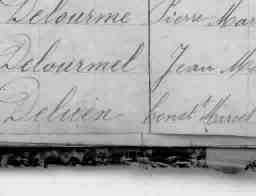 Delourme Pierre Mar
Delourmel Jean Ma
Delieen Const. Marcel